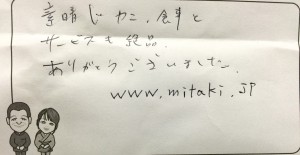 素晴しかった、食事と
サービスも絶品。
ありがとうございました。
www.mitaki.jp